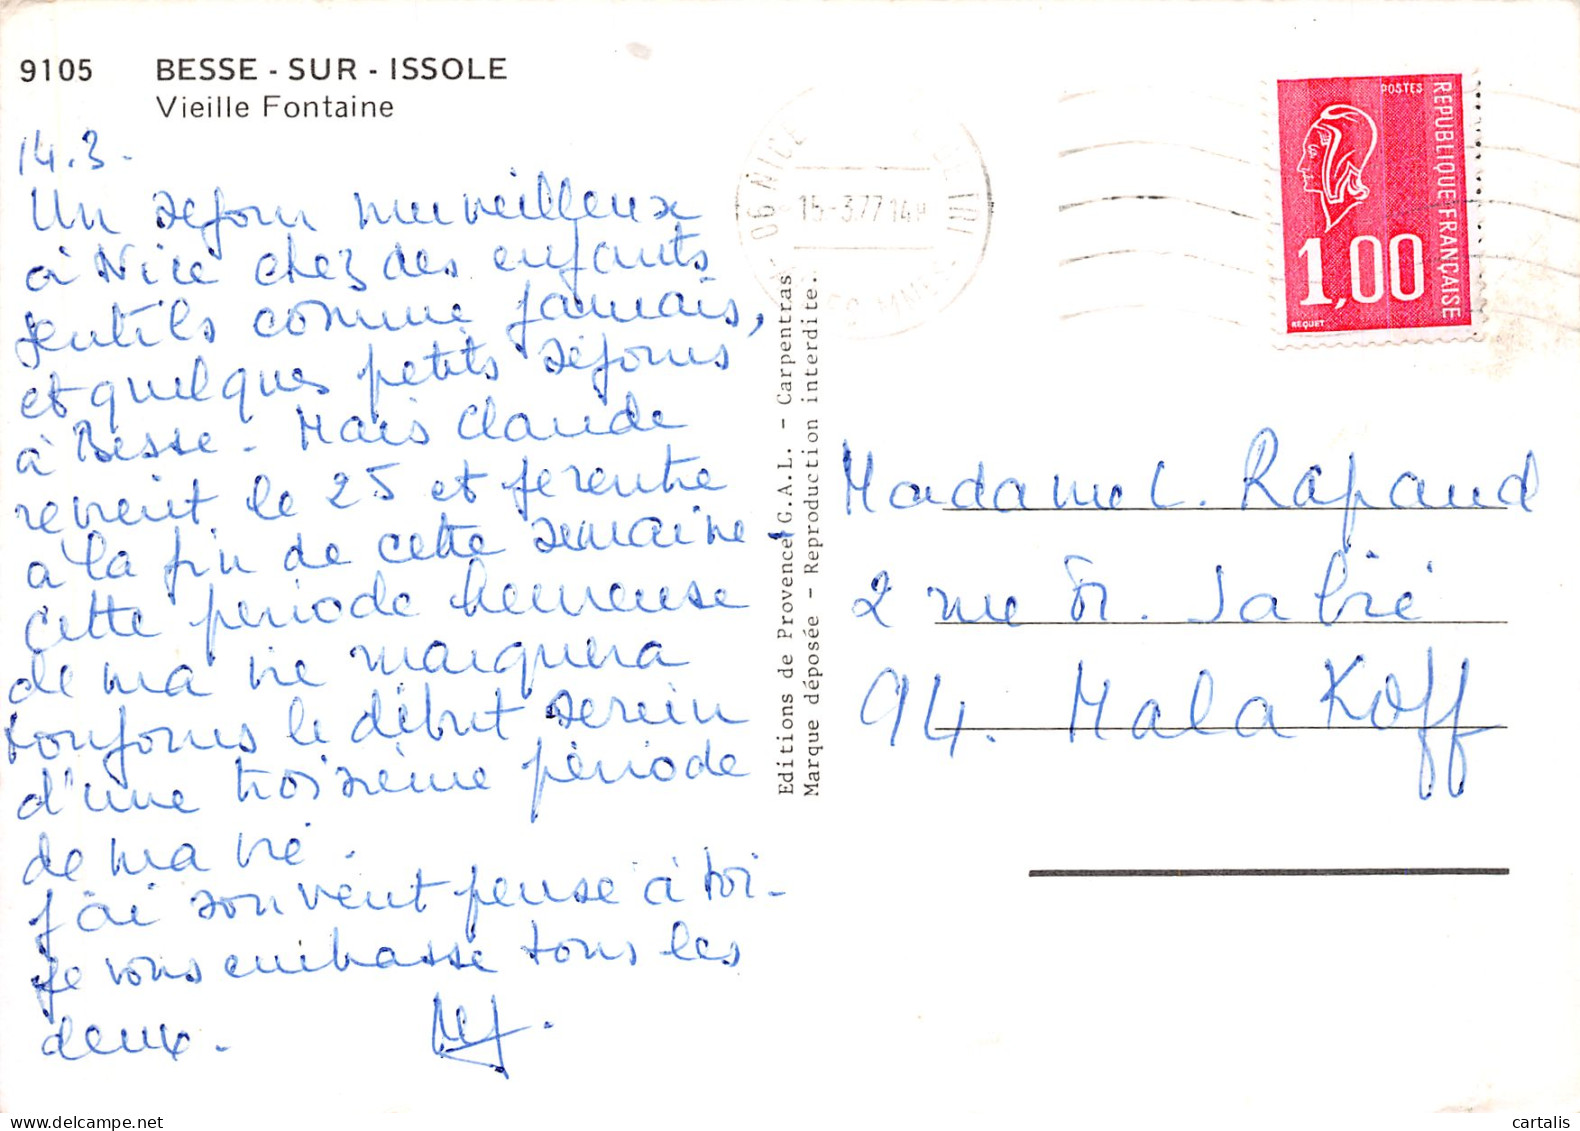 9105 BESSE - SUR - ISSOLE
Vieille Fontaine
14.3.
Un séjour merveilleux
à Nice chez des enfants
gentils comme jamais,
et quelques petits séjours
à Besse. Mais Claude
revient le 25 et je rentre
à la fin de cette semaine.
Cette période heureuse
de ma vie marquera
toujours le début serein
d'une troisième période
de ma vie.
J'ai souvent pensé à toi.
Je vous embrasse tous les
deux.
Editions de Provence G.A.L. - Carpentras
Marque déposée - Reproduction interdite.
06 NICE
15-3.77 14H
POSTES
REPUBLIQUE FRANÇAISE
1,00
BEQUET
Madame L. Rapaud
2 rue Fr.
94. Malakoff
cartalis